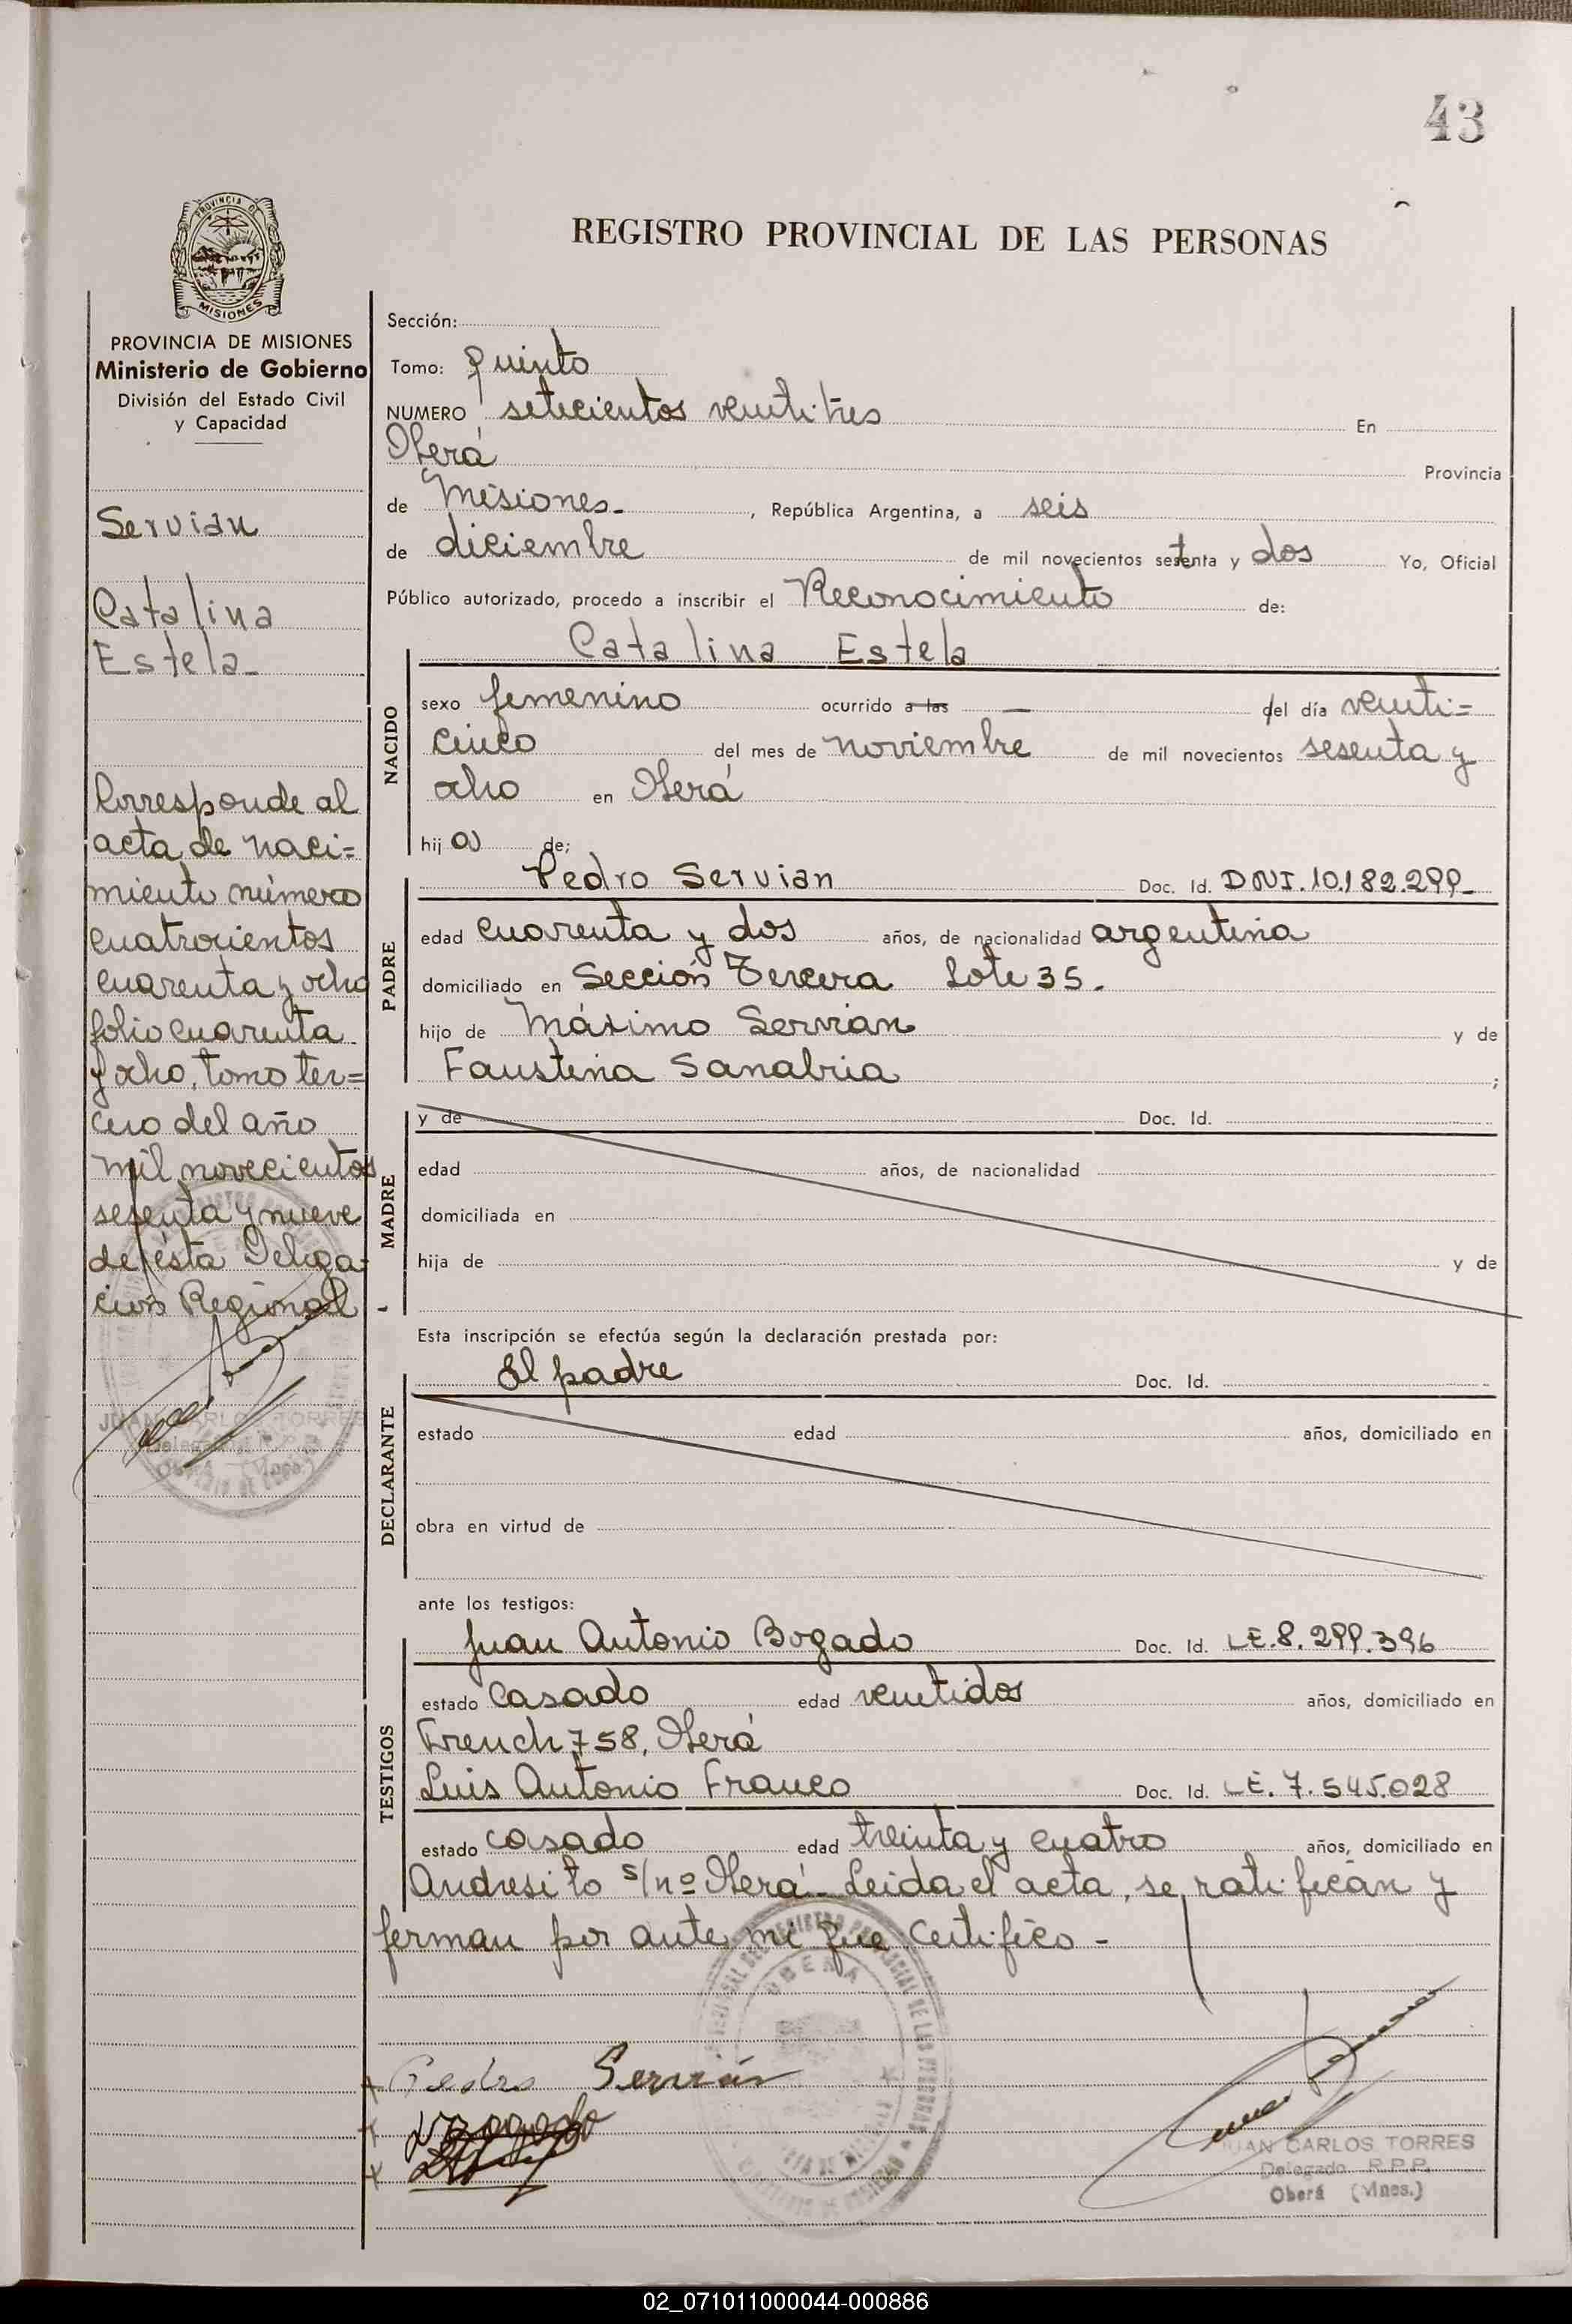 43
PROVINCIA DE
MISIONES
REGISTRO PROVINCIAL DE LAS PERSONAS
PROVINCIA DE MISIONES
Ministerio de Gobierno
División del Estado Civil
y Capacidad
Servian
Catalina
Estela_
Corresponde al
acta de naci=
miento número
cuatrocientos
cuarenta y ocho
folio cuarenta
y ocho, tomo ter=
cero del año
mil novecientos
sesenta y nueve
de ésta Delega=
ción Regional
JUAN CARLOS TORRES
Delegado R.P.P.
Oberá (Mnes.)
Sección:
Tomo: quinto
NUMERO setecientos veintitres En
Oberá Provincia
de Misiones_ , República Argentina, a seis
de diciembre de mil novecientos setenta y dos Yo, Oficial
Público autorizado, procedo a inscribir el Reconocimiento de:
Catalina Estela
NACIDO
sexo femenino ocurrido a las — del día veinti=
cinco del mes de noviembre de mil novecientos sesenta y
ocho en Oberá
hija de;
PADRE
Pedro Servian Doc. Id. DNI. 10.182.299_
edad cuarenta y dos años, de nacionalidad argentina
domiciliado en Sección Tercera Lote 35.
hijo de Máximo Servian y de
Faustina Sanabria ;
MADRE
y de Doc. Id.
edad años, de nacionalidad
domiciliada en
hija de y de
Esta inscripción se efectúa según la declaración prestada por:
DECLARANTE
El padre Doc. Id.
estado edad años, domiciliado en
obra en virtud de
ante los testigos:
TESTIGOS
Juan Antonio Bogado Doc. Id. LE. 8. 299. 396
estado casado edad veintidos años, domiciliado en
French 758, Oberá
Luis Antonio Franco Doc. Id. LE. 7. 545.028
estado casado edad treinta y cuatro años, domiciliado en
Andresito s/nº Oberá_ Leida el acta, se ratifican y
firman por ante mi que certifico -
OBERA
Pedro Servián
Bogado
JUAN CARLOS TORRES
Delegado R.P.P.
Oberá (Mnes.)
02_071011000044-000886